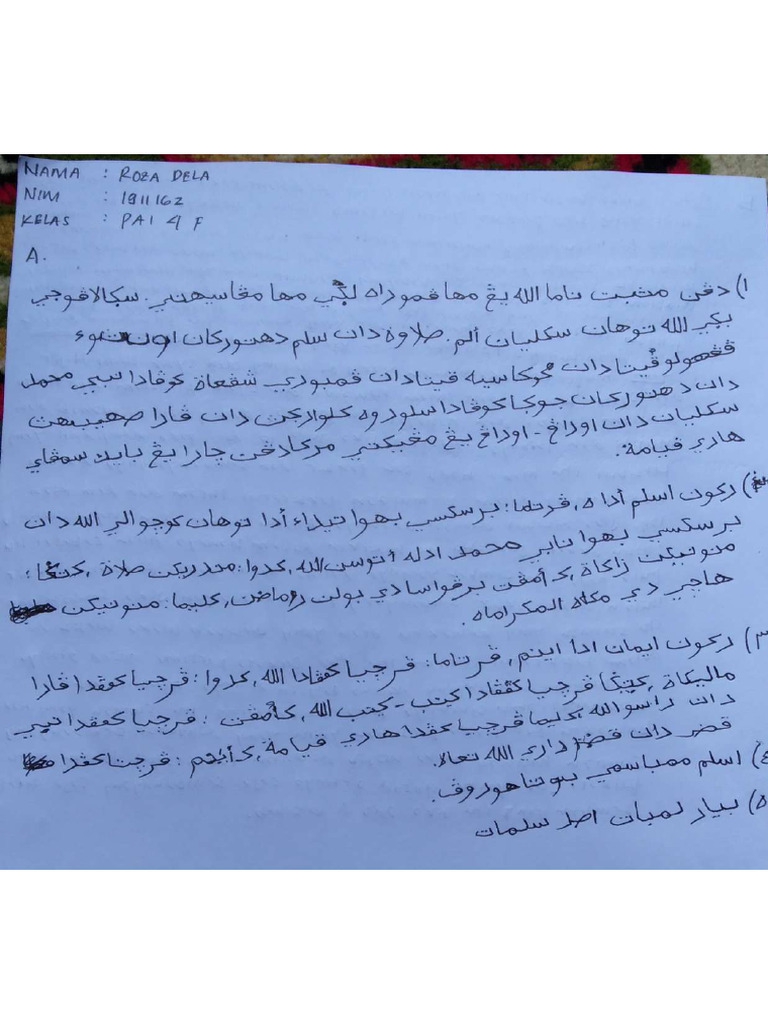 NAMA : ROZA DELA
NIM : 1911162
KELAS : PAI 4 F
A.
١) دڠن مڽبت ناما الله يڠ مها ڤموراه لڬي مها مڠاسيهني. سڬالا ڤوجي
بڬي الله توهان سكليان ألم. صلاوة دان سلم دهنتوركان اونتوء
ڤڠهولو قيتا دان كوكاسيه قيتا دان ڤمبوري شفعاة كڤادا نبي محمد
دان دهنتوركان جوڬا كڤادا سلوروه كلوارڬن دان ڤارا صهيبهن
سكليان دان اوراڠ - اوراڠ يڠ مڠيكتي مركا دڠن چارا يڠ باءيد سمڤاي
هاري قيامة.
) ركون اسلم أدا ه, ڤرتما: برسكسي بهوا تيداء أدا توهان كوجوالي الله دان
برسكسي بهوا نابي محمد ادله أتوسن الله, كدوا: مندريكن صلاة, كتيڬا:
منونيكن زاكاة, كأمڤت برڤواسا دي بولن رماضن, كليما: منونيكن
هاجي دي مكاه المكراماه.
٣) ركون ايمان ادا اينم, ڤرتاما: ڤرچيا كڤادا الله, كدوا: ڤرچيا كڤدا ڤارا
ماليكاة, كتيڬا ڤرچيا كڤادا كتب-كتب الله, كأمڤت: ڤرچيا كڤدا نبي
دان راسو الله, كليما ڤرچيا كڤدا هاري قيامة, كأينم: ڤرچيا كڤدا
قضر دان قضر داري الله تعالى.
٤) اسلم ممباسمي بوتا هوروف.
٥) بيار لمبان اصل سلمات